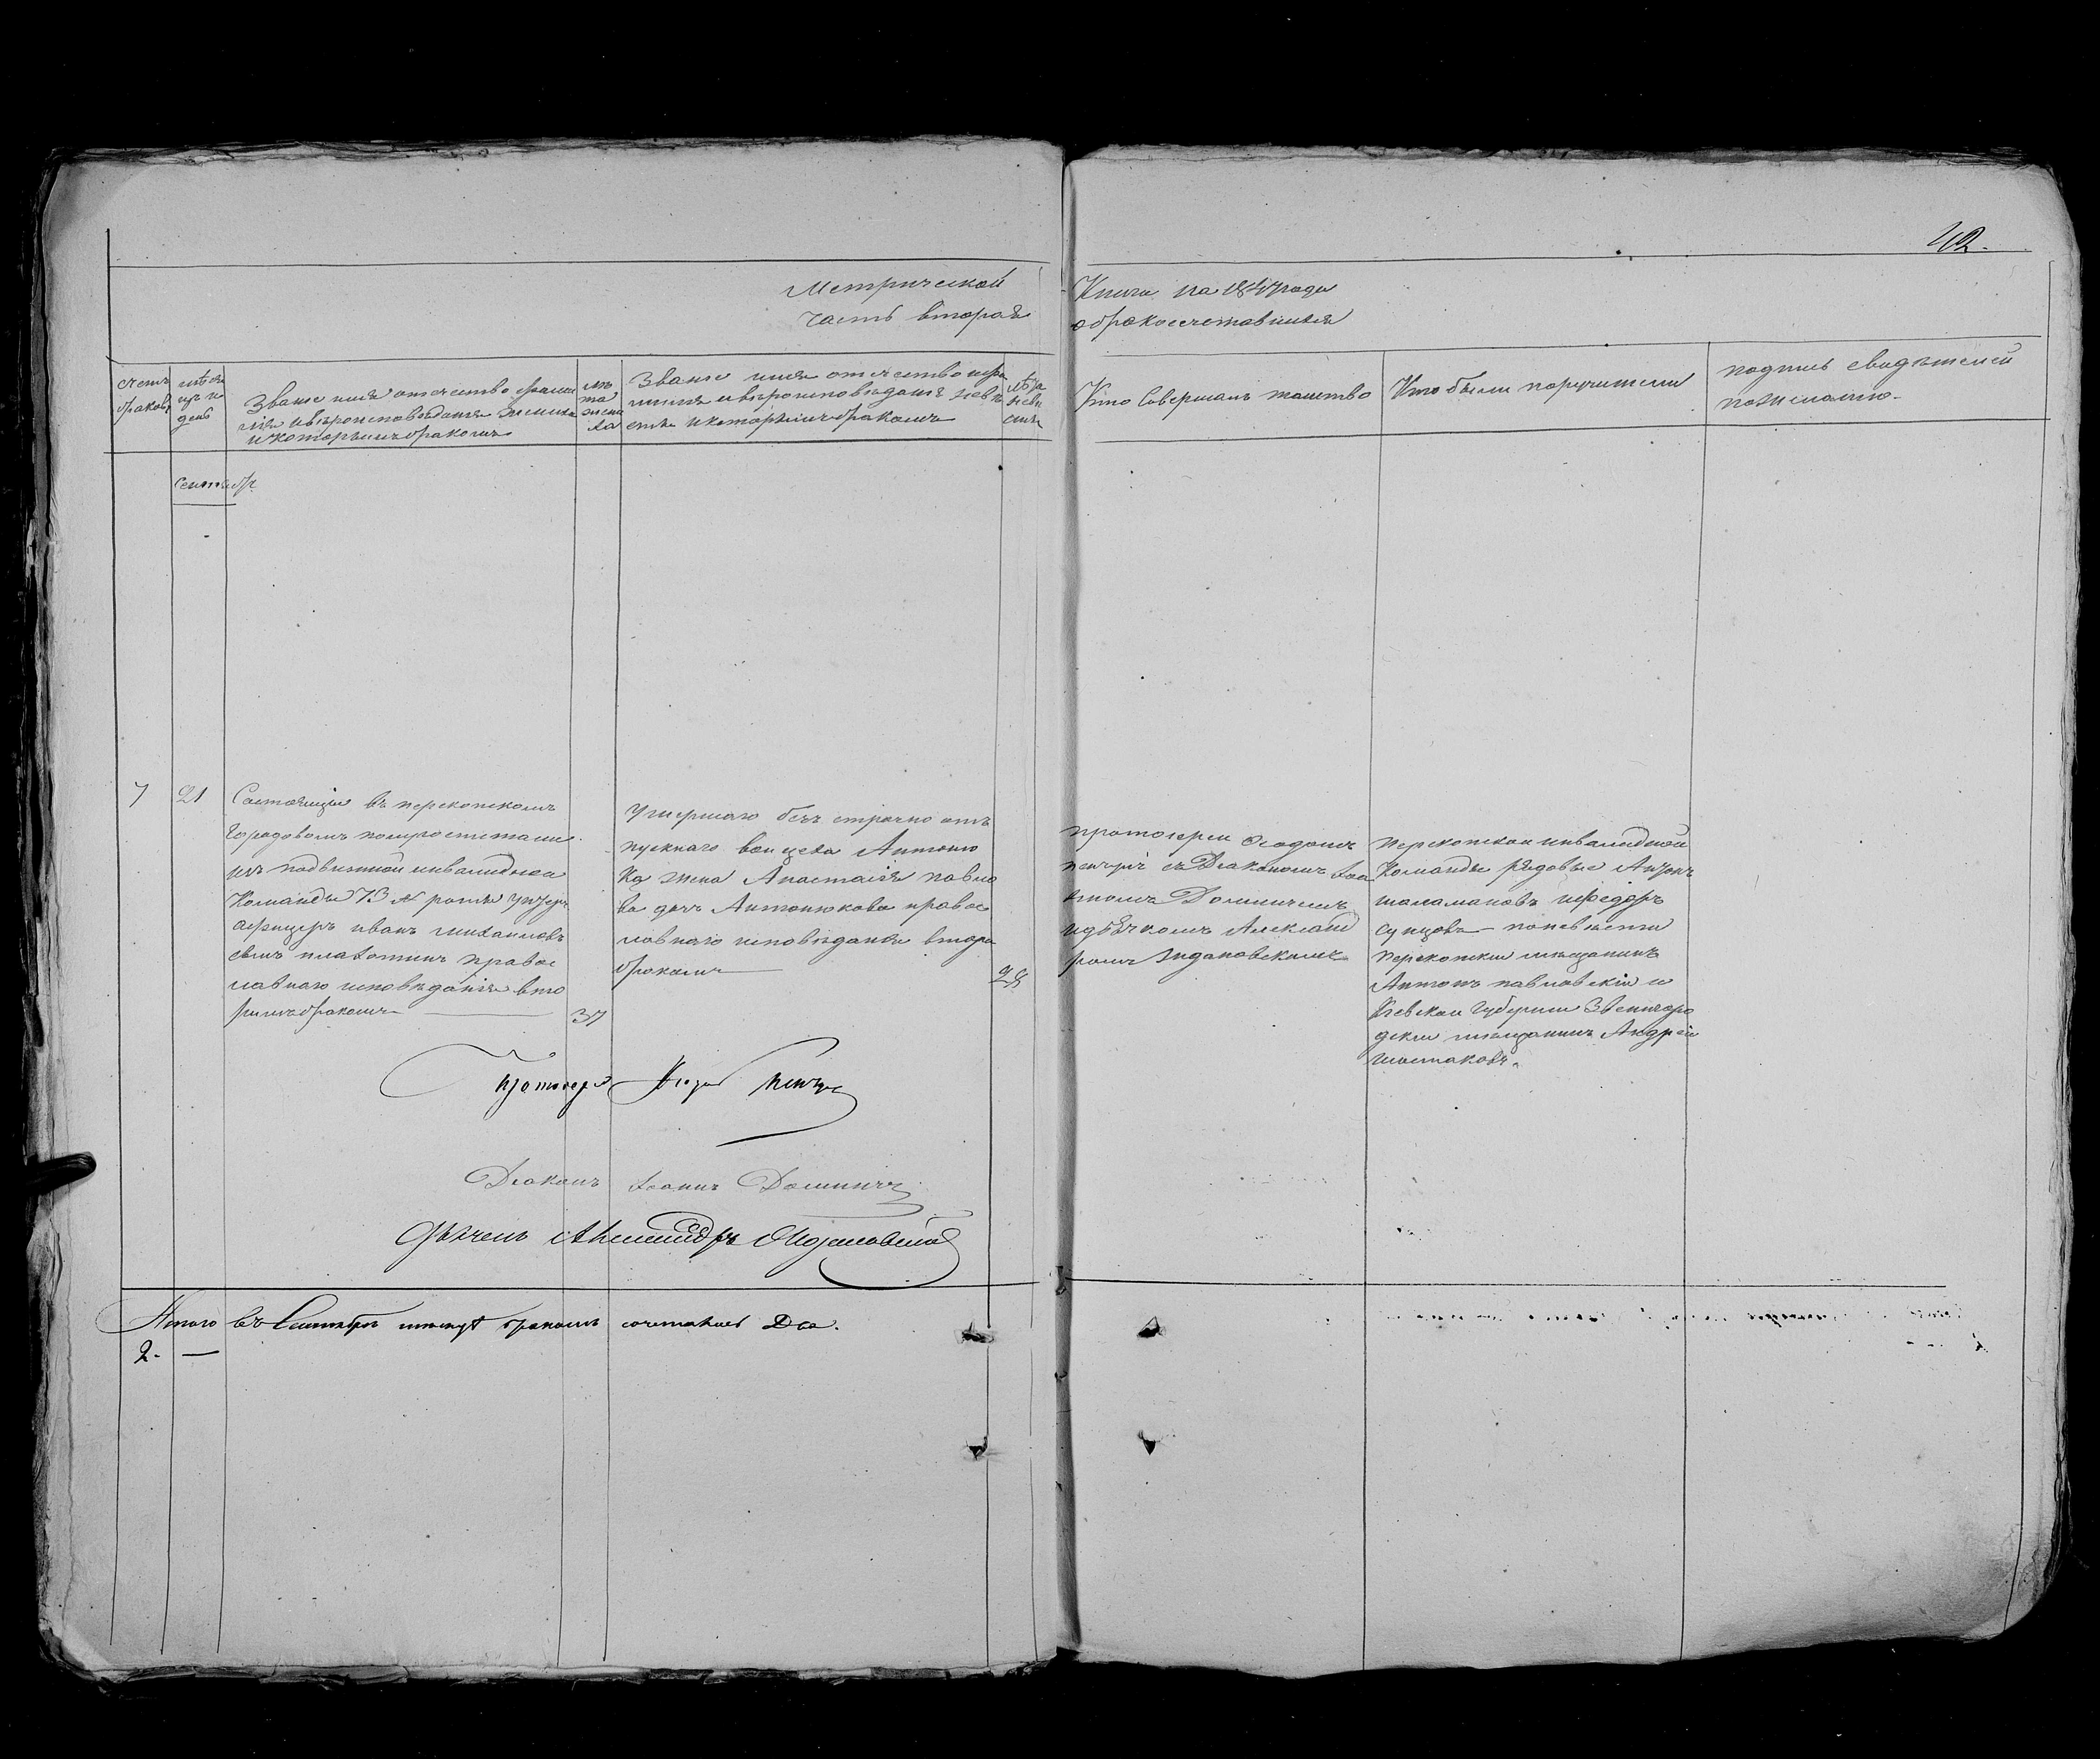 42.
Метрической
часть вторая
Книги на 1847 года
о бракосочетавшихся
счетъ
браковъ
мѣся
цъ и
день
Званіе имя отечество фами
лія и вѣроисповѣданіе жениха
и которымъ бракомъ
лѣ
та
жени
ха
Званіе имя отечество и фа
милія и вѣроисповѣданіе невѣ
сты и которымъ бракомъ
лѣта
невѣ
сты
Кто совершалъ таинство
Кто были поручители
подпись свидѣтелей
по желанію.
Сентябр
7
21
Состоящій въ перекопскомъ
городовомъ полугоспитали
изъ подвижной инвалидной
Команды № роты унтеръ
афицеръ иванъ михаиловъ
сынъ правос
лавнаго исповѣданія вто
рымъ бракомъ
37
Умершаго безъ срочно отъ
пускнаго Антоню
ка жена Анастасія павло
ва дочь Антонюкова правос
лавнаго исповѣданія вторы
бракомъ
25
протоіерей Феодоръ
съ Діакономъ Іоа
нномъ
и дьячкомъ Александ
ромъ Ждановскимъ
перекопской инвалидной
Команды рядовые
шаламановъ и федоръ
сунцовъ по невѣсты
перекопскій мѣщанинъ
Антонъ павловскій и
Кіевской губерніи Звенигоро
дскій мѣщанинъ Андрей
шостаковъ.
Протоіерей Феодоръ
Діаконъ Іоаннъ
Дьячекъ Александръ Ждановскій
Итого въ Сентябрѣ мѣсяцѣ бракомъ сочеталось Два.
2. —